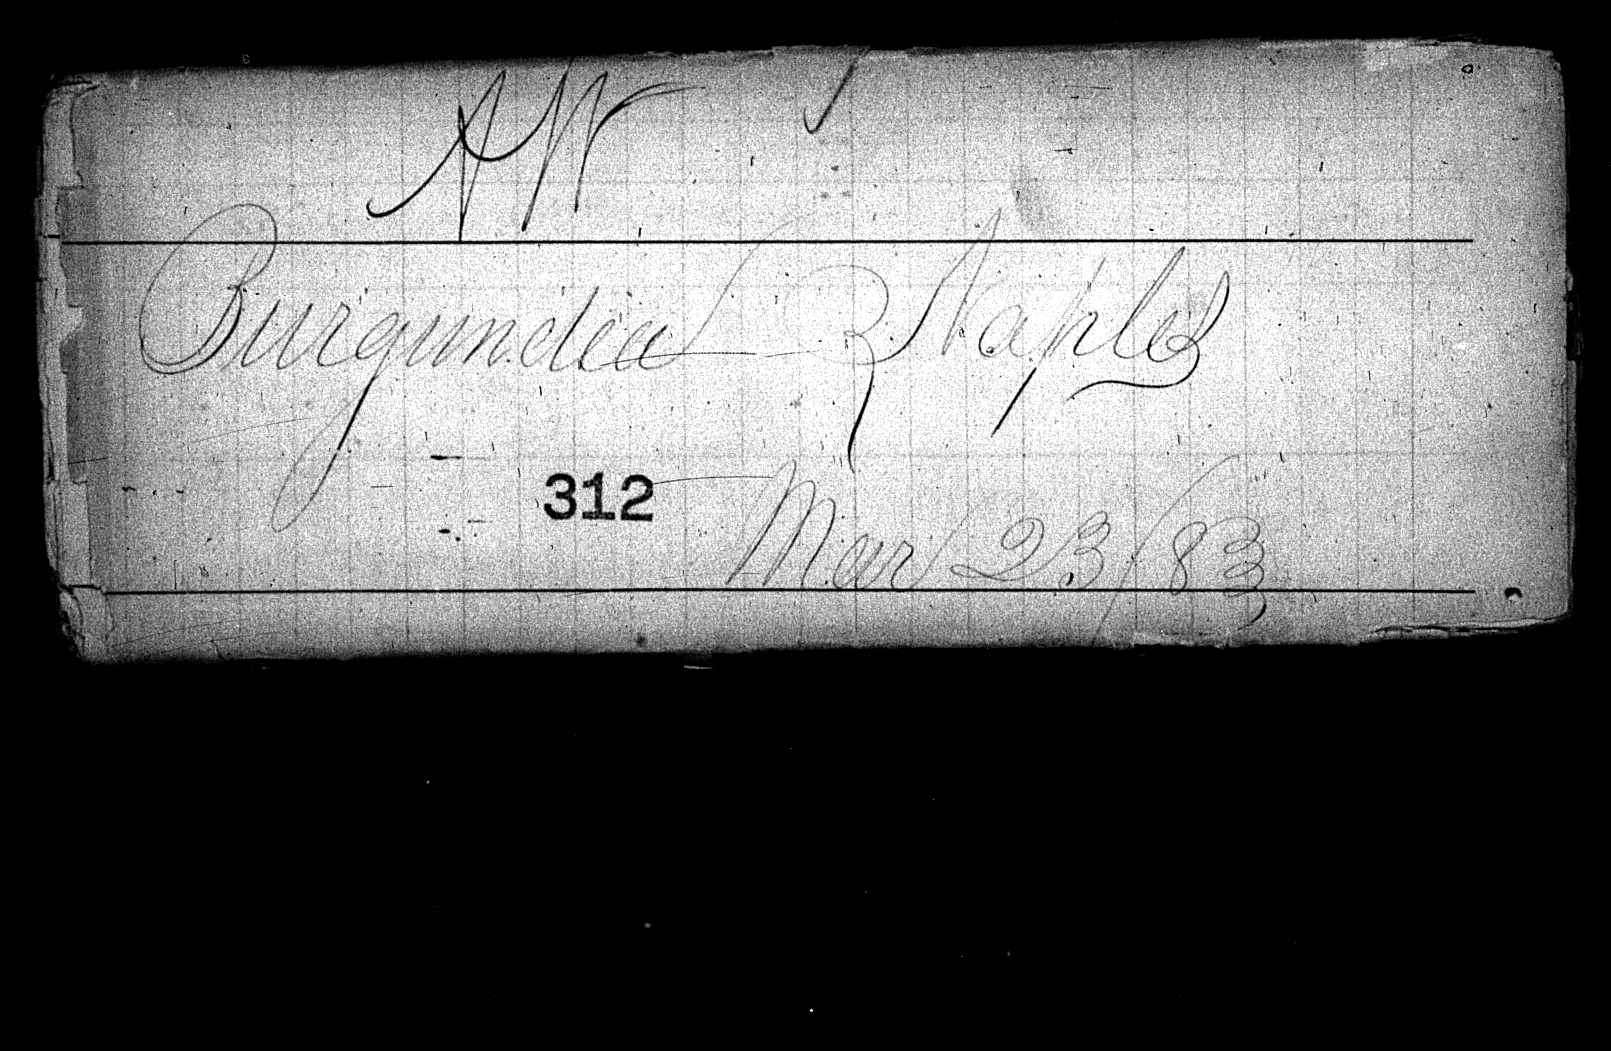 AW
Burgundia Naples
312
Mar 23/83